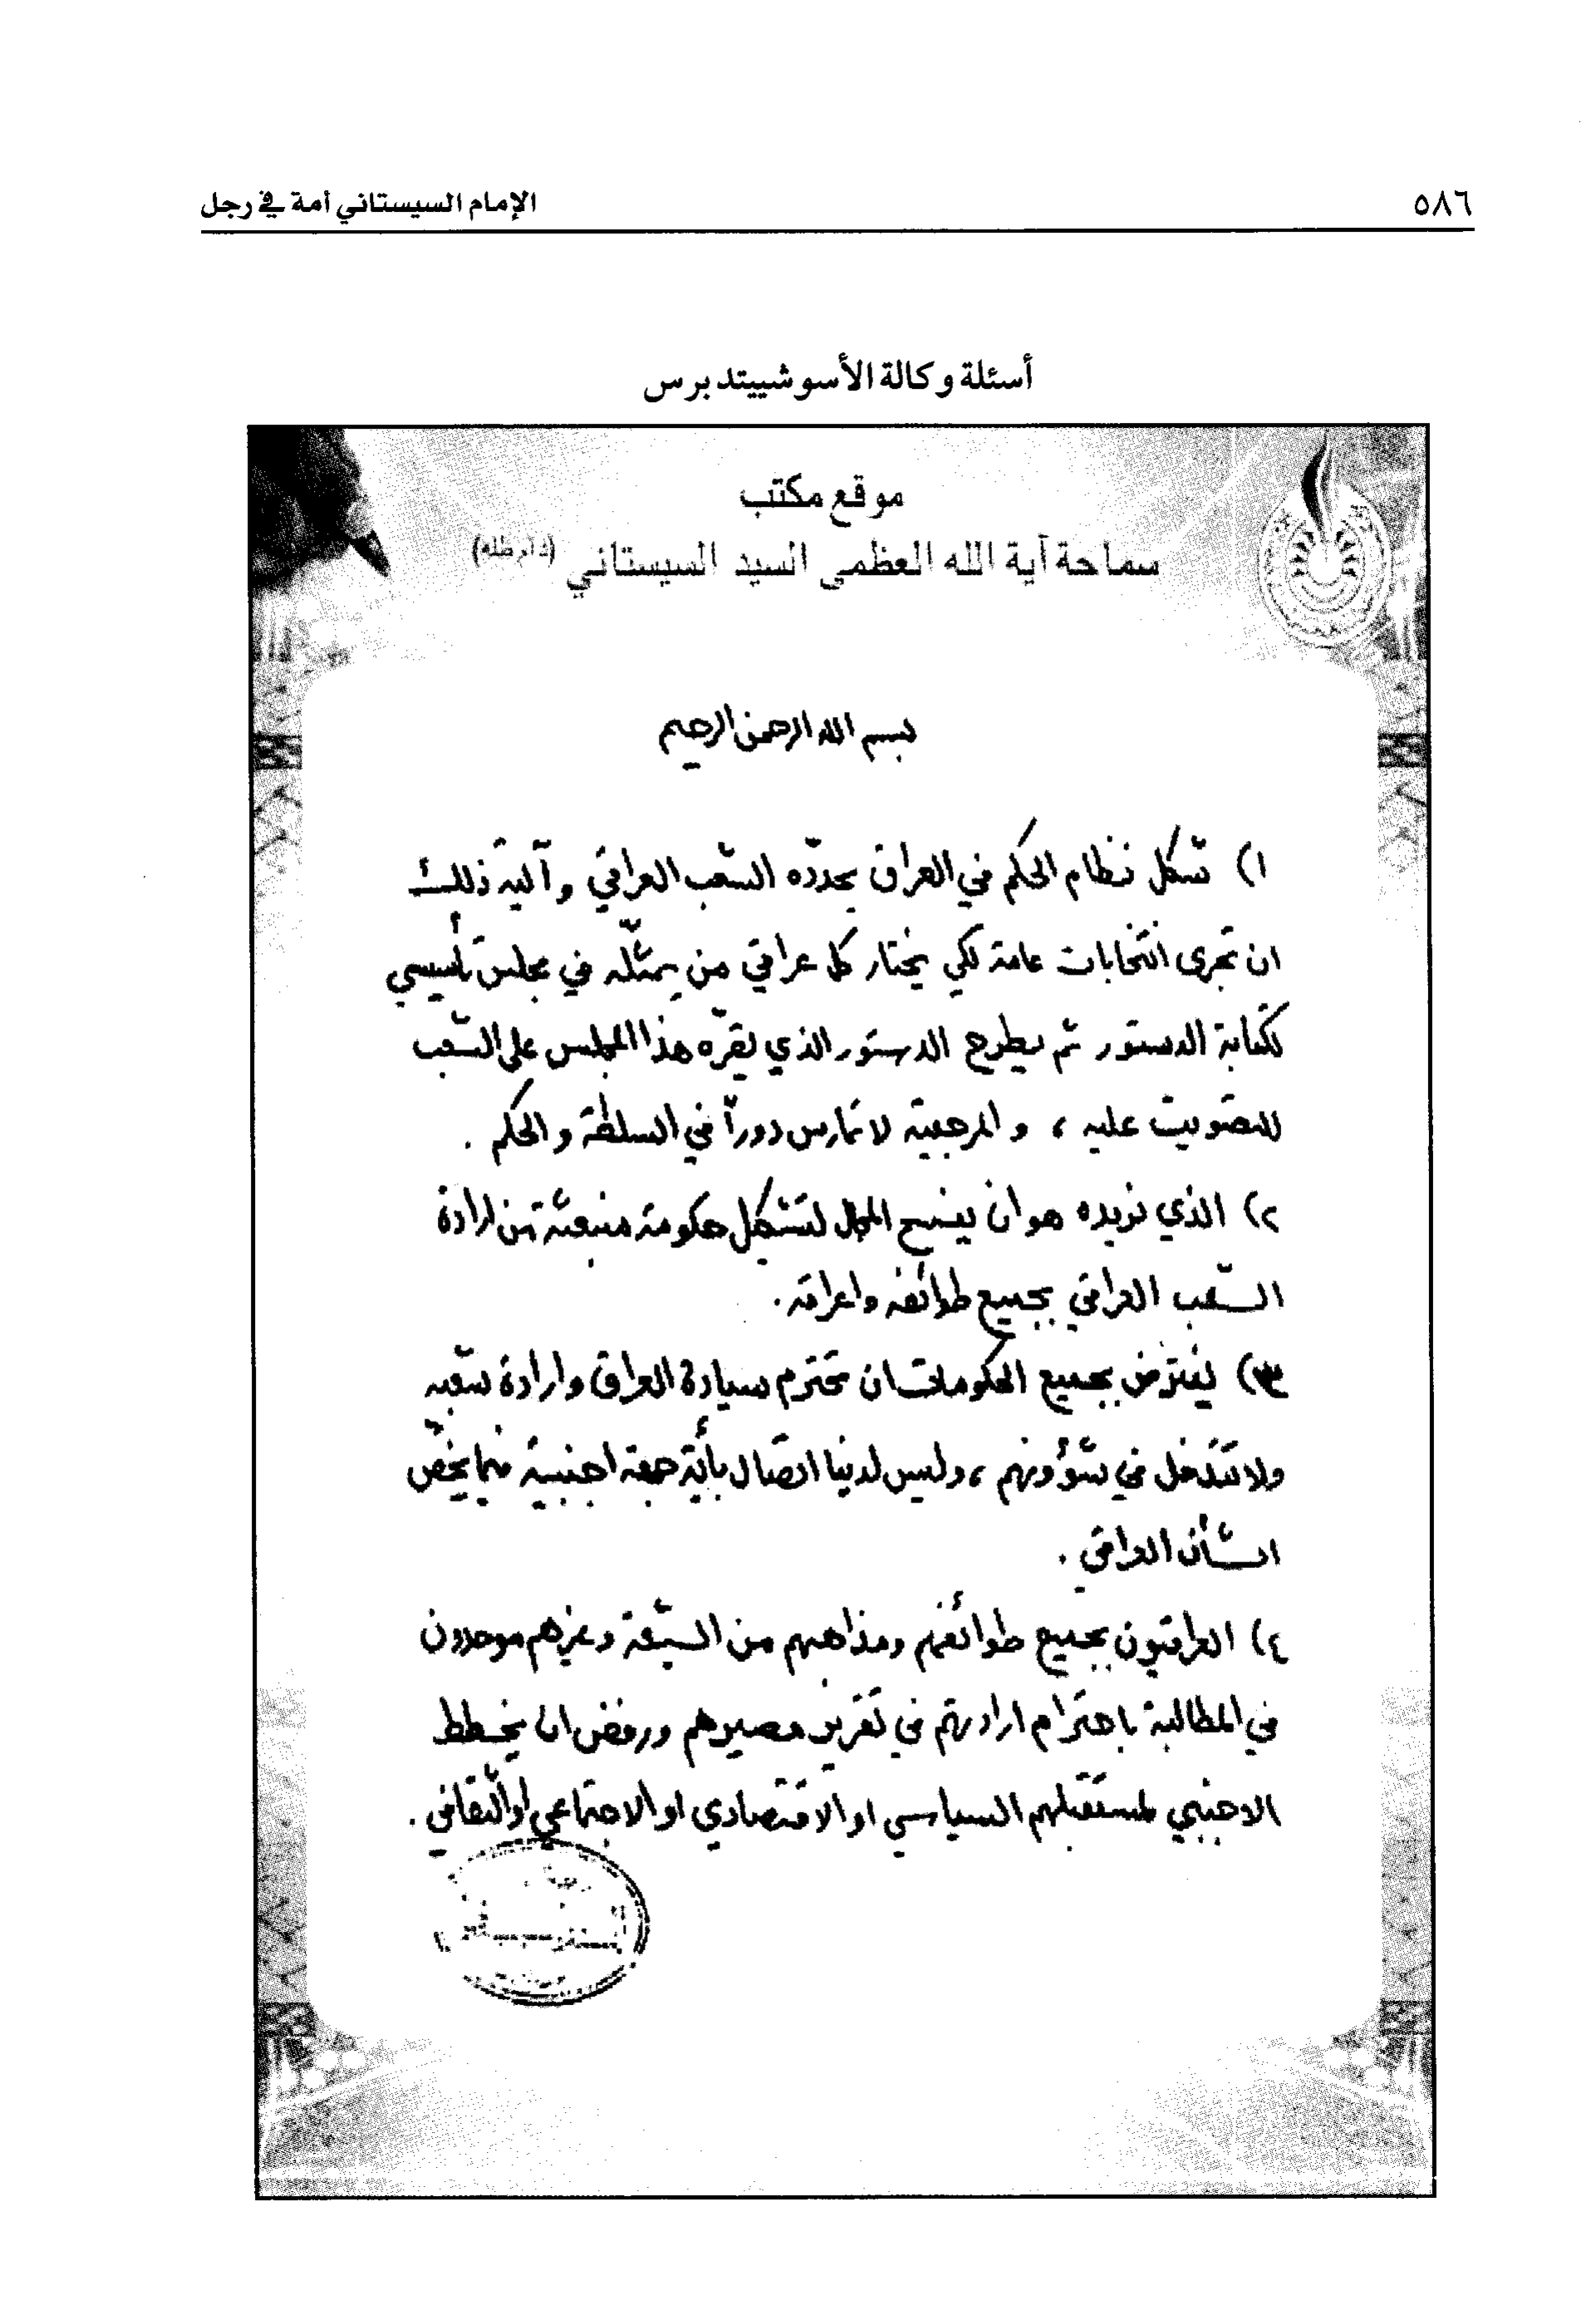 ٥٨٦
الإمام السيستاني أمة في رجل
أسئلة وكالة الأسوشييتد برس
موقع مكتب
سماحة آية الله العظمى السيد السيستاني (دام ظله)
بسم الله الرحمن الرحيم
١) شكل نظام الحكم في العراق يحدّده الشعب العراقي وآلية ذلك
ان تجرى انتخابات عامة لكي يختار كل عراقي من يمثّله في مجلس تأسيسي
لكتابة الدستور ثم يطرح الدستور الذي يقرّه هذا المجلس على الشعب
للتصويت عليه ، والمرجعية لا تمارس دوراً في السلطة والحكم .
٢) الذي نريده هو ان يفسح المجال لتشكيل حكومة منبعثة من ارادة
الشعب العراقي بجميع طوائفه واعراقه .
٣) يفترض بجميع الحكومات ان تحترم سيادة العراق وارادة شعبه
ولا تتدخل في شؤونهم ، وليس لدينا اتصال بأيّة جهة اجنبية فيما يخصّ
الشأن العراقي .
٤) العراقيون بجميع طوائفهم ومذاهبهم من الشيعة وغيرهم موحدون
في المطالبة باحترام ارادتهم في تقرير مصيرهم ورفض ان يخطط
الاجنبي لمستقبلهم السياسي او الاقتصادي او الاجتماعي او الثقافي .